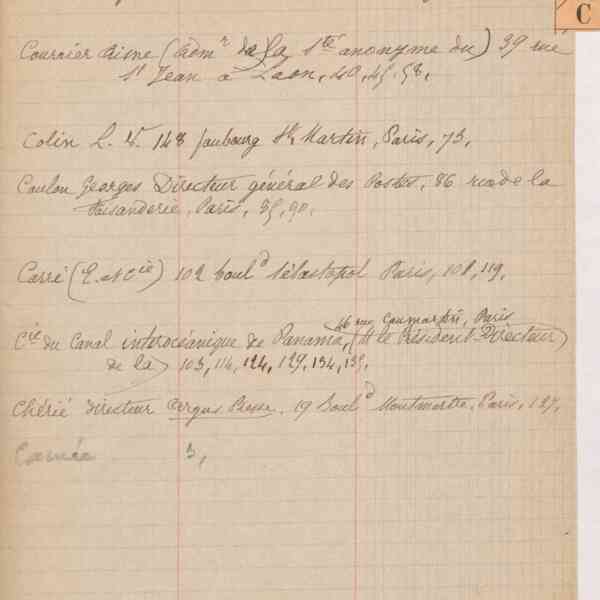 C
Courrier Aisne (Adm^r de la S^té anonyme du) 39 rue
S^t Jean à Laon, 40, 45, 58,
Colin L. V. 148 faubourg S^t Martin, Paris, 73,
Coulon Georges Directeur général des Postes, 86 rue de la
Faisanderie, Paris, 85, 90,
Carré (E. et C^ie) 102 boul^d Sébastopol Paris, 108, 119,
46 rue Caumartin, Paris
C^ie du Canal interocéanique de Panama, (M le Président-Directeur
de la) 103, 114, 124, 129, 134, 135,
Chérié Directeur Argus Presse, 19 boul^d Montmartre, Paris, 127,
3,